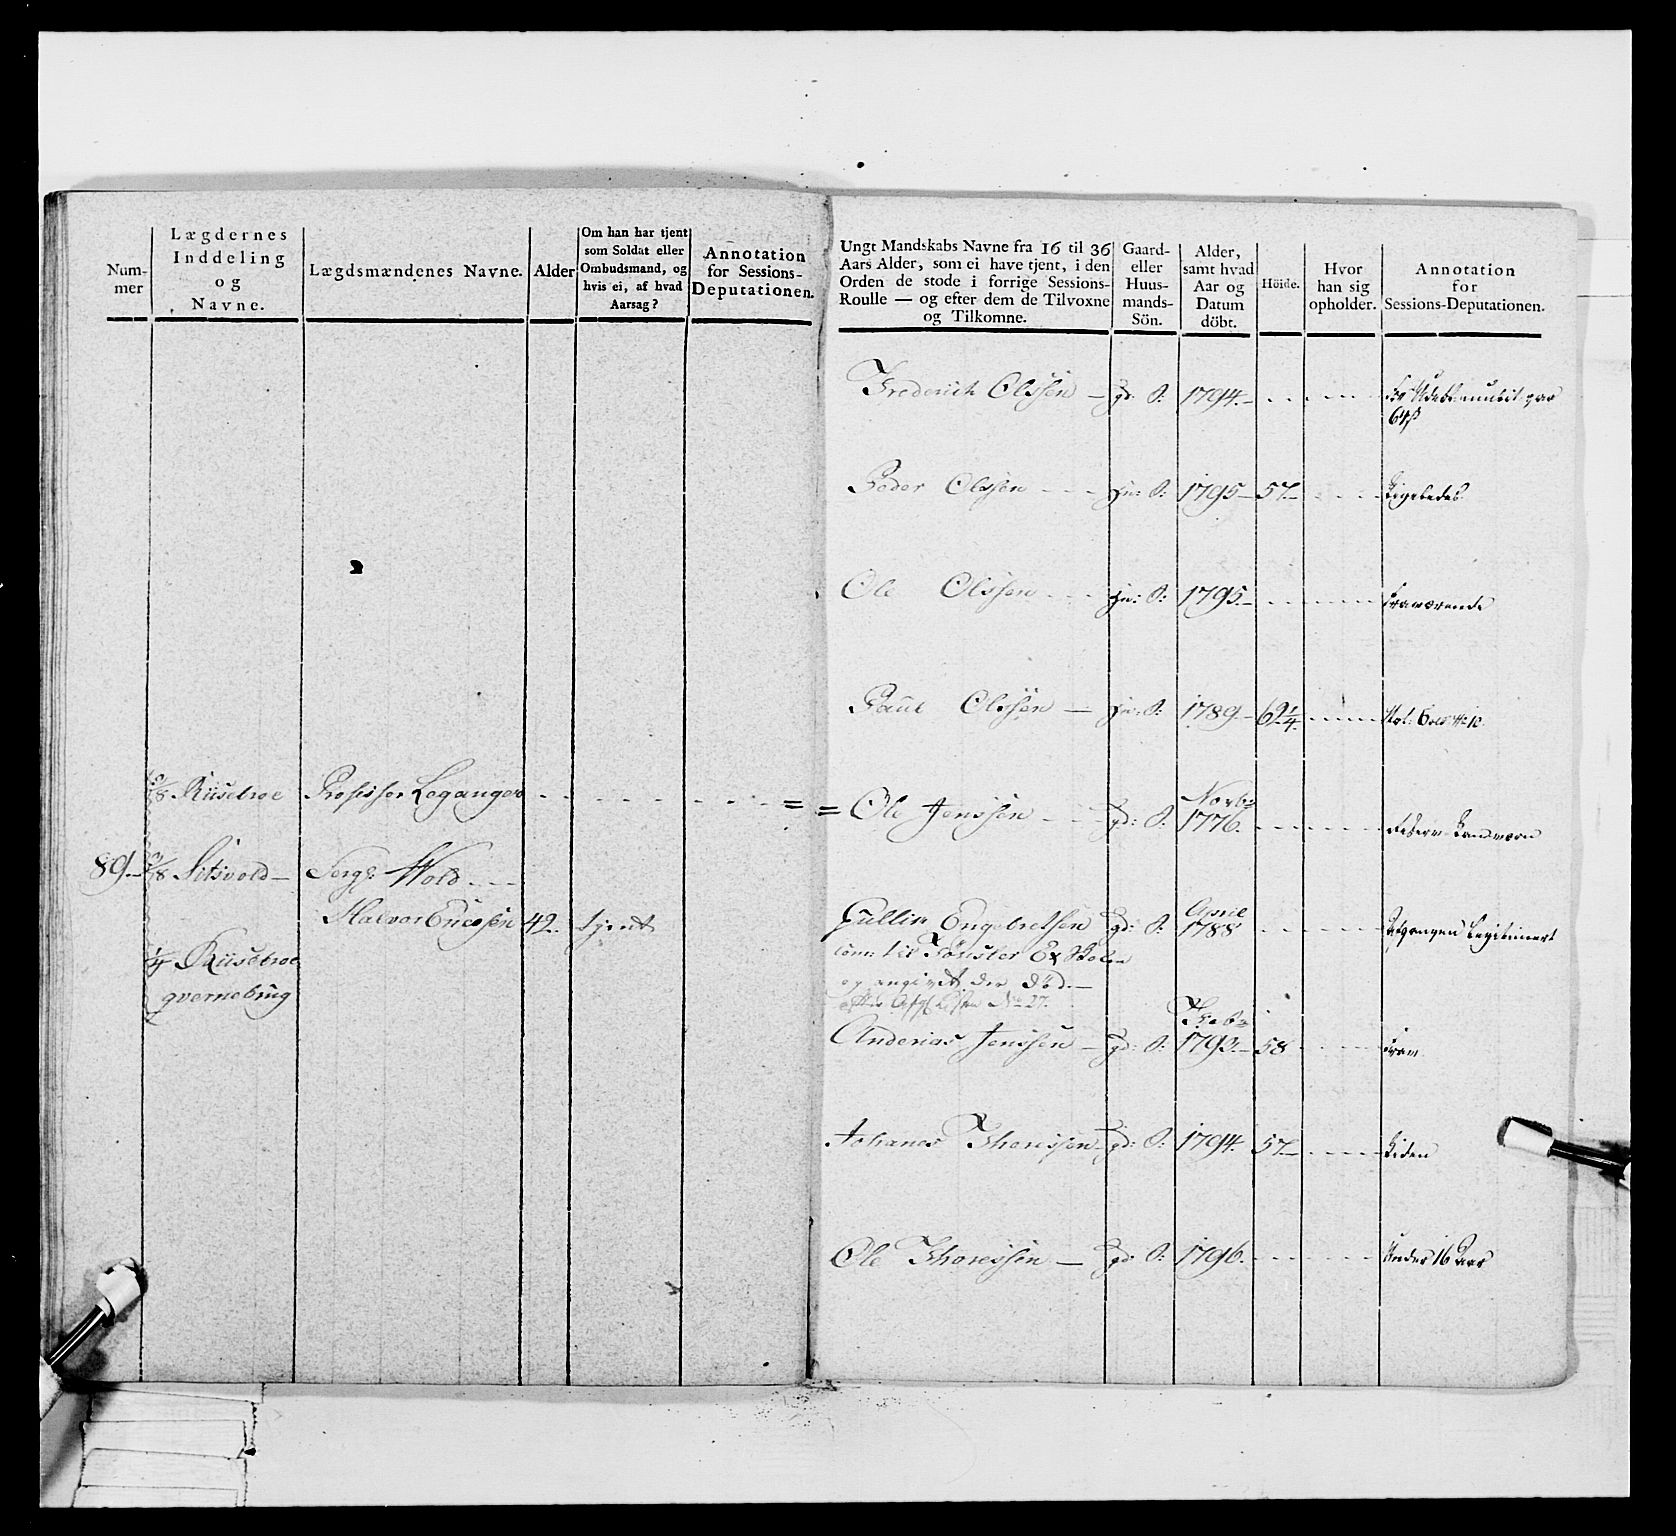 Num-
mer
Lægdernes
Inddeling
og
Navne.
Lægdsmændenes Navne.
Alder
Om han har tjent
som Soldat eller
Ombudsmand, og
hvis ei, af hvad
Aarsag?
Annotation
for Sessions-
Deputationen.
5/8 Riisebroe Professor Leganger
89. 5/8 Sitsvold Sergt: Wold
Halvor Ericssen 42. tjent
1/4 Riisebroe
qvernebrug
Ungt Mandskabs Navne fra 16 til 36
Aars Alder, som ei have tjent, i den
Orden de stode i forrige Sessions-
Roulle — og efter dem de Tilvoxne
og Tilkomne.
Gaard-
eller
Huus-
mands-
Sön.
Alder,
samt hvad
Aar og
Datum
döbt.
Höide.
Hvor
han sig
opholder.
Annotation
for
Sessions-Deputationen.
Frederich Olssen — gd: S: 1794.
64ß
Peder Olssen hu: S: 1795 57. Ligeledes
Ole Olssen hu: S: 1795. Fraværende
Paul Olssen — hu: S: 1789 69 1/4
Novbr
Ole Jenssen gd: S: 1776. Reserv Landværn
April
Gullik Engebretsen gd: S: 1788 Afgangen Legitimert
og angivet der død. —
No 27.
Febr
Anderias Jenssen — gd: S: 1792. 58
Johanes Thoressen gd: S: 1794. 57. Liden
Ole Thoressen — gd: S: 1796. Under 16 Aar